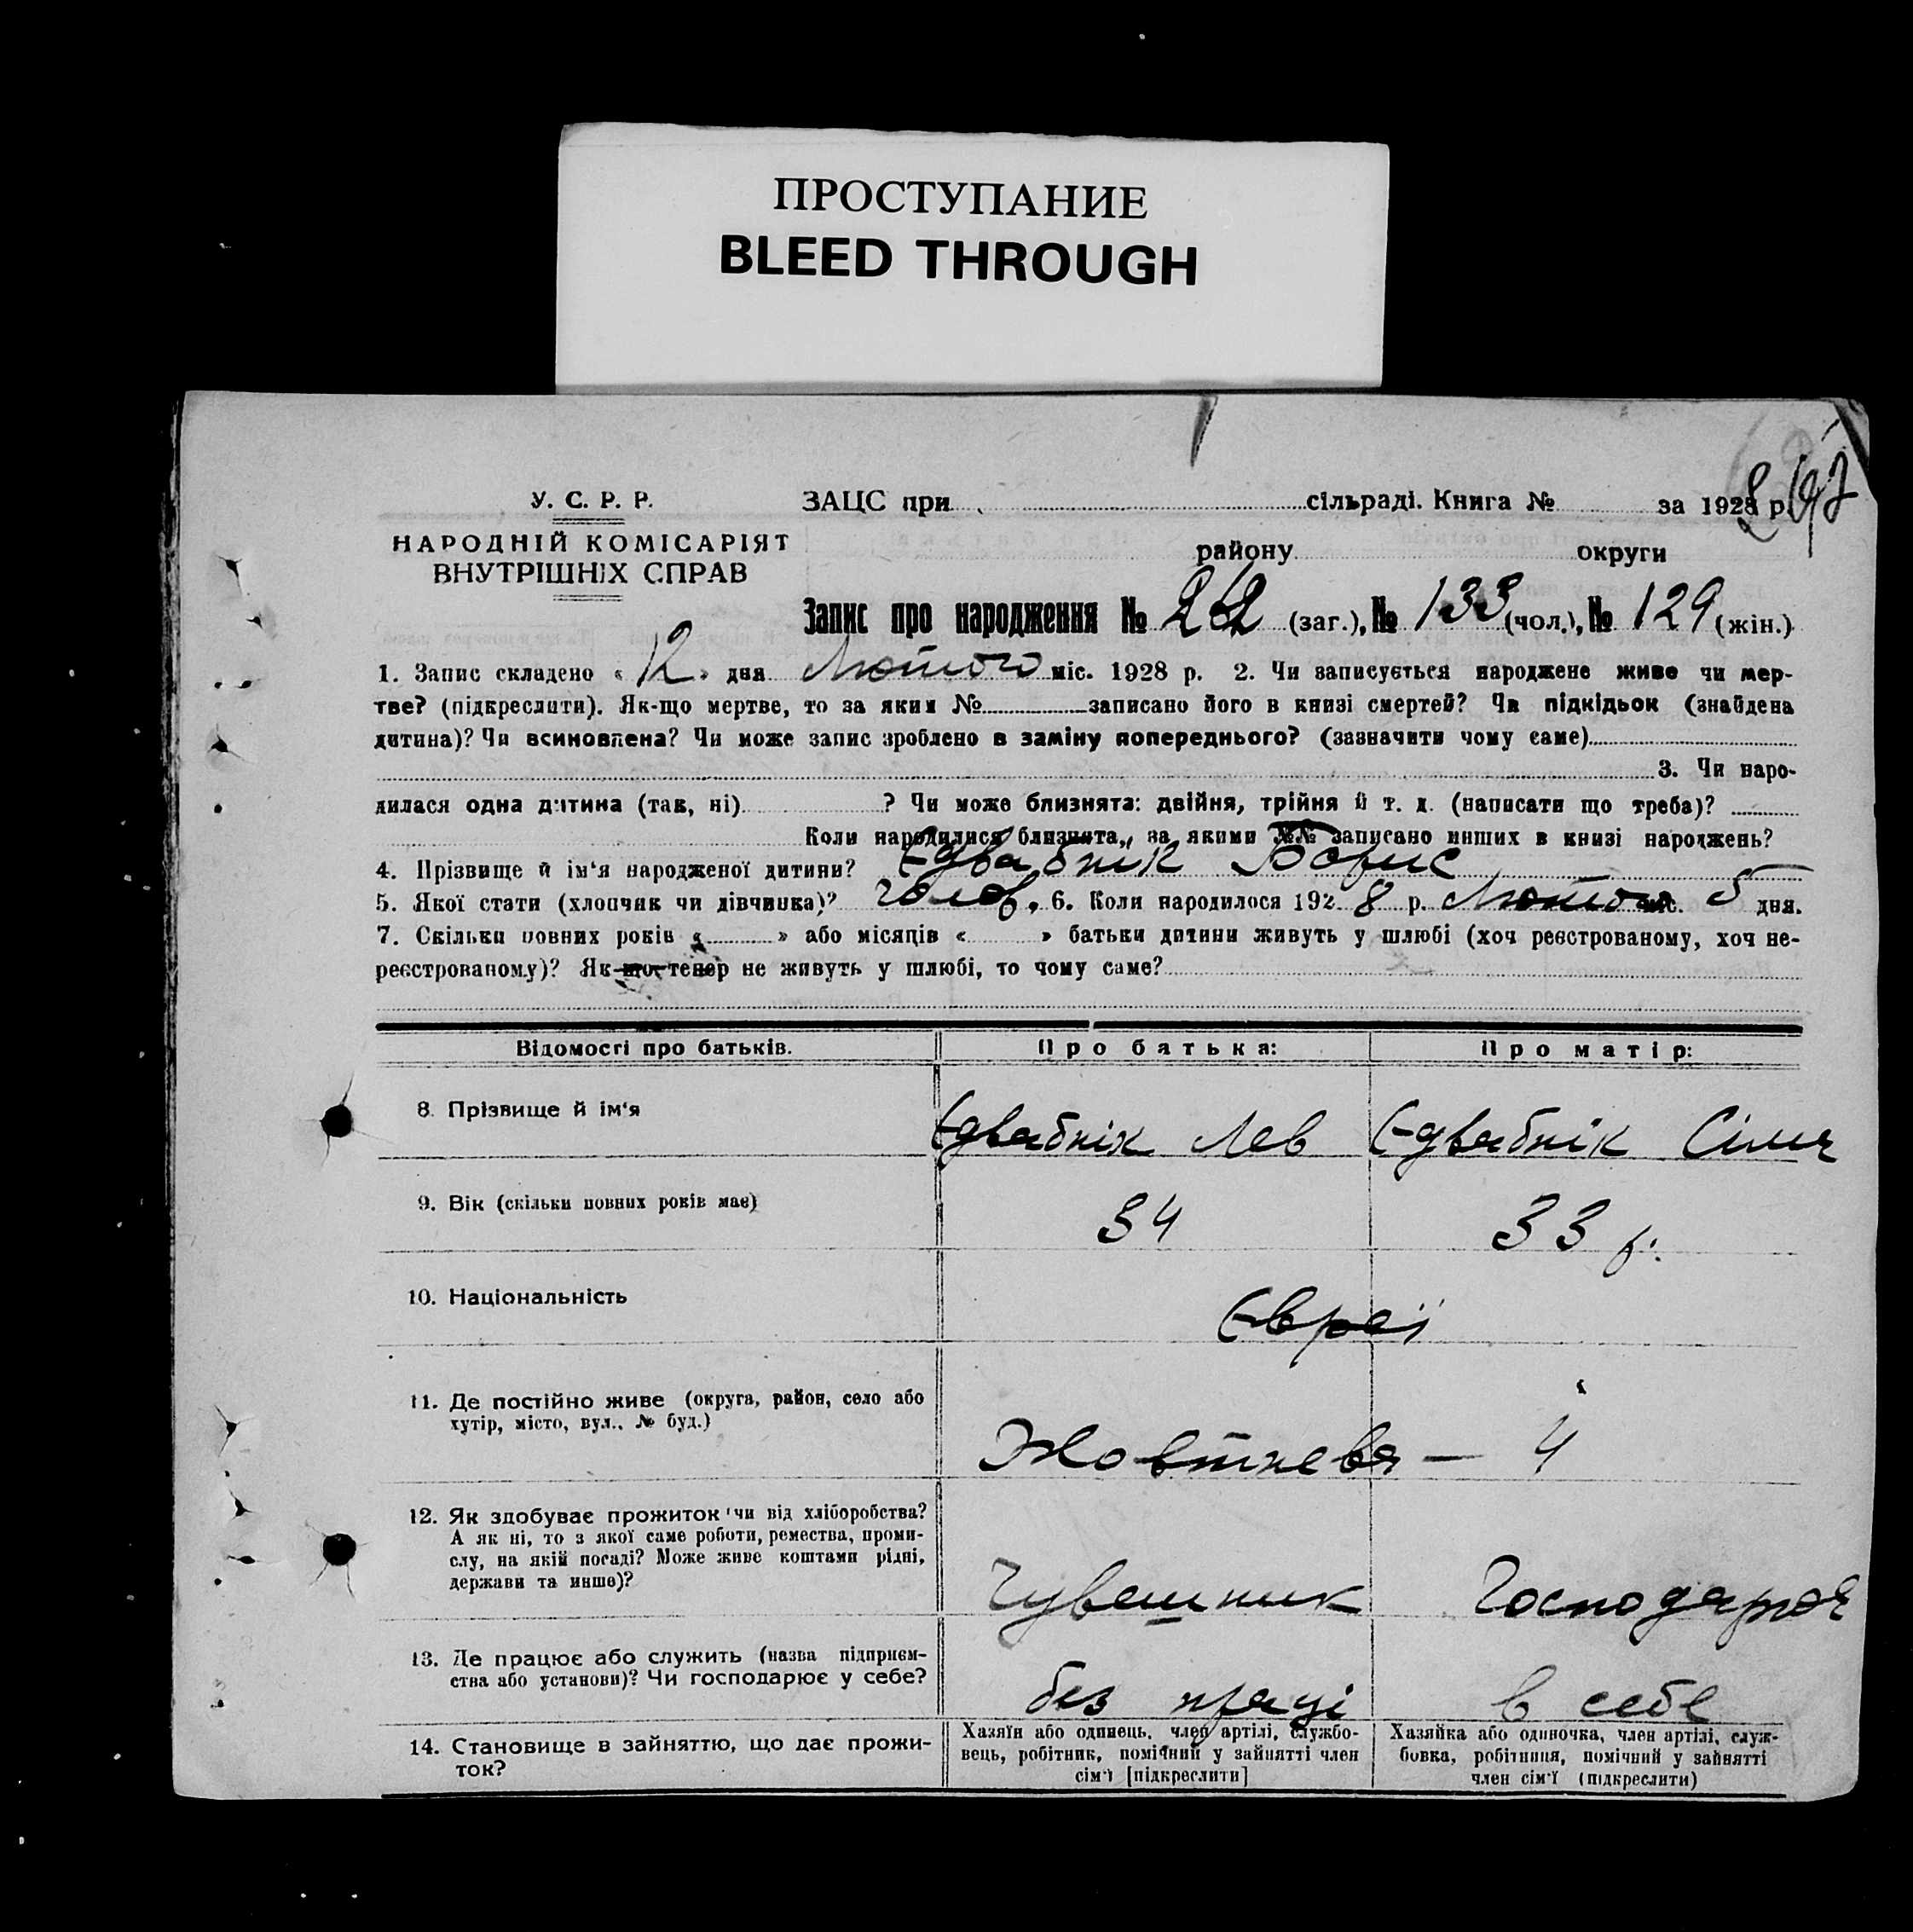 ПРОСТУПАНИЕ
BLEED THROUGH
У. С. Р. Р.
НАРОДНІЙ КОМІСАРІЯТ
ВНУТРІШНІХ СПРАВ
ЗАЦС при сільраді. Книга № за 1928 р.
району округи
Запис про народження № 262 (заг.), № 133 (чол.), № 129 (жін.)
1. Запис складено « 12 » дня Лютого міс. 1928 р. 2. Чи записується народжене живе чи мер-
тве? (підкреслити). Як-що мертве, то за яким № записано його в книзі смертей? Чи підкідьок (знайдена
дитина)? Чи всиновлена? Чи може запис зроблено в заміну попереднього? (зазначити чому саме)
3. Чи наро-
дилася одна дитина (так, ні) ? Чи може близнята: двійня, трійня й т. д. (написати що треба)?
Коли народилися близнята, за якими №№ записано инших в книзі народжень?
4. Прізвище й ім'я народженої дитини? Єдвабнік Борис
5. Якої стати (хлопчик чи дівчинка)? чолов. 6. Коли народилося 1928 р. Лютого міс. 5 дня.
7. Скільки повних років « » або місяців « » батьки дитини живуть у шлюбі (хоч реєстрованому, хоч не-
реєстрованому)? Як-що тепер не живуть у шлюбі, то чому саме?
Відомості про батьків. Про батька: Про матір:
8. Прізвище й ім'я Єдвабнік Лев Єдвабнік Сіма
9. Вік (скільки повних років має) 34 33 р.
10. Національність Євреї
11. Де постійно живе (округа, район, село або
хутір, місто, вул., № буд.) Жовтнева — 4
12. Як здобуває прожиток чи від хліборобства?
А як ні, то з якої саме роботи, ремества, проми-
слу, на якій посаді? Може живе коштами рідні,
держави та инше)? Господарка
13. Де працює або служить (назва підприєм-
ства або установи)? Чи господарює у себе? без праці в себе
14. Становище в зайняттю, що дає прожи-
ток?
Хазяїн або одинець, член артілі, службо-
вець, робітник, помічний у зайнятті член
сім'ї [підкреслити]
Хазяйка або одиночка, член артілі, служ-
бовка, робітниця, помічний у зайнятті
член сім'ї (підкреслити)